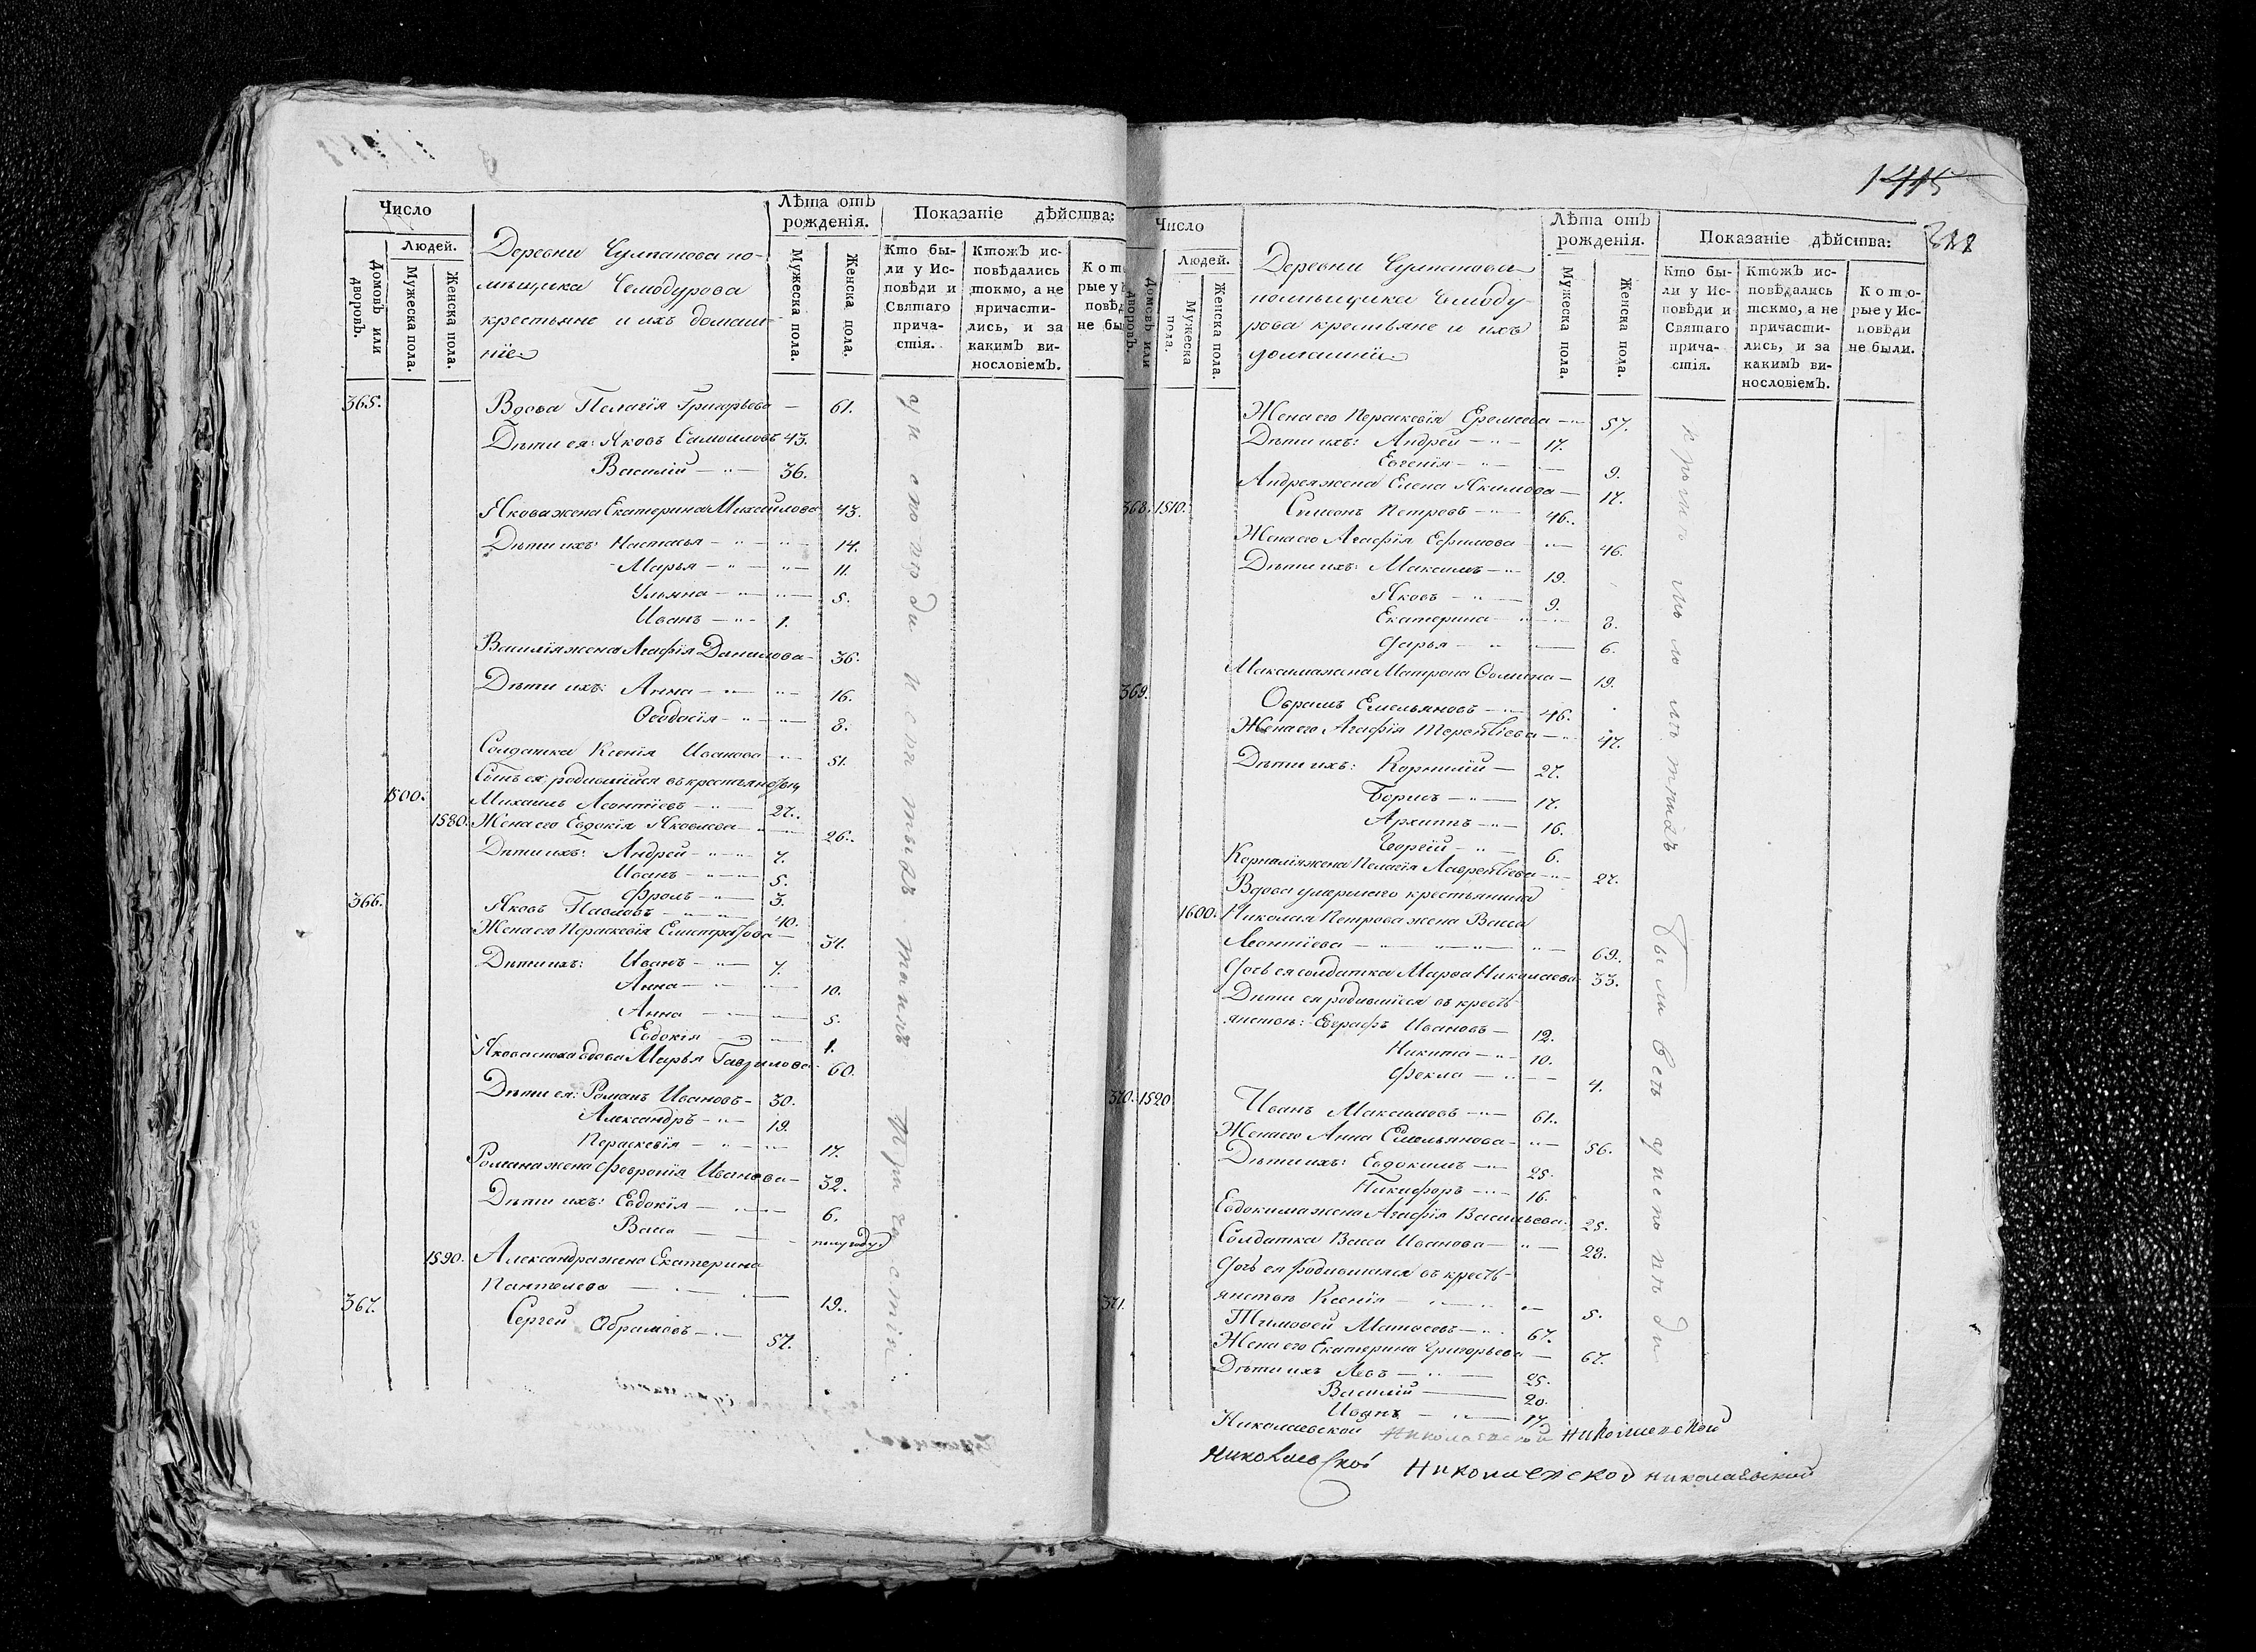 Число
Людей.
Домовъ или дворовъ.
Мужеска пола.
Женска пола.
Деревни Султанова по-
мѣщика Чемодурова
крестьяне и ихъ домаш-
нїе
Лѣта отъ рожденїя.
Мужеска пола.
Женска пола.
Показанїе дѣйства:
Кто бы-
ли у Ис-
повѣди и
Святаго
прича-
стїя.
Ктожъ ис-
повѣдались
токмо, а не
причасти-
лись, и за
какимъ ви-
нословїемъ.
365. Вдова Пелагїя Григорьева — 61.
Дѣти ея: Яковъ Самойловъ 43.
Василїй — 36.
Якова жена Екатерина Михайлова 43.
Дѣти ихъ: Настасья — 14.
Марья — 11.
Ульяна — 5.
Иванъ — 1.
Василїя жена Агафїя Данилова — 36.
Дѣти ихъ: Анна — 16.
Ѳеодосїя — 8.
Солдатка Ксенїя Иванова — 51.
Сынъ ея родившїйся въ крестьянствѣ
1500. Михаилъ Леонтїевъ — 27.
1580. Жена его Евдокїя Яковлева — 26.
Дѣти ихъ: Андрей — 7.
Иванъ — 5.
Фролъ — 3.
366. Яковъ Павловъ — 40.
Жена его Параскевїя Елистратова — 31.
Дѣти ихъ: Иванъ — 7.
Анна — 10.
Анна — 5.
Евдокїя — 1.
Якова сноха вдова Марья Гаврилова 60.
Дѣти ея: Романъ Ивановъ — 30.
Александръ — 19.
Параскевїя — 17.
Романа жена Февронїя Иванова — 32.
Дѣти ихъ: Евдокїя — 6.
Васса — полугоду
1590. Александра жена Екатерина
Пантелева — 19.
367. Сергей Абрамовъ — 57.
Число
Людей.
Домовъ или дворовъ.
Мужеска пола.
Женска пола.
Деревни Султанова
помѣщика Чемоду-
рова крестьяне и ихъ
домашнїи
Лѣта отъ рожденїя.
Мужеска пола.
Женска пола.
Показанїе дѣйства:
Кто бы-
ли у Ис-
повѣди и
Святаго
прича-
стїя.
Ктожъ ис-
повѣдались
токмо, а не
причасти-
лись, и за
какимъ ви-
нословїемъ.
Кото-
рые у Ис-
повѣди
не были.
Жена его Параскевїя Еремеева — 57.
Дѣти ихъ: Андрей — 17.
Евгенїя — 9.
Андрея жена Елена Якимова — 17.
368. 1510. Симеонъ Петровъ — 46.
Жена его Агафїя Ефимова — 46.
Дѣти ихъ: Максимъ — 19.
Яковъ — 9.
Екатерина — 8.
Дарья — 6.
Максима жена Матрона Ѳомина — 19.
369. Обрамъ Емельяновъ — 46.
Жена его Агафїя Терентїева — 47.
Дѣти ихъ: Корнилїй — 27.
Борисъ — 17.
Архипъ — 16.
Георгїй — 6.
Корнилїя жена Пелагїя Лаврентїева — 27.
Вдова умершаго крестьянина
1600. Николая Петрова жена Васса
Леонтїева — 69.
Дочь ея солдатка Марѳа Николаева 33.
Дѣти ея родившїеся въ кресть-
янствѣ: Евграфъ Ивановъ — 12.
Никита — 10.
Фекла — 4.
370. 1520. Иванъ Максимовъ — 61.
Жена его Анна Емельянова — 56.
Дѣти ихъ: Евдокимъ — 25.
Никифоръ — 16.
Евдокима жена Агафїя Васильева 25.
Солдатка Васса Иванова — 28.
Дочь ея родившаяся въ кресть-
янствѣ Ксенїя — 5.
371. Тимоѳей Матвеевъ — 67.
Жена его Екатерина Григорьева — 67.
Дѣти ихъ Левъ — 25.
Василїй — 20.
Иванъ — 17.
Николаевской Николаевской Николаевской
Николаевской Николаевской николаевской